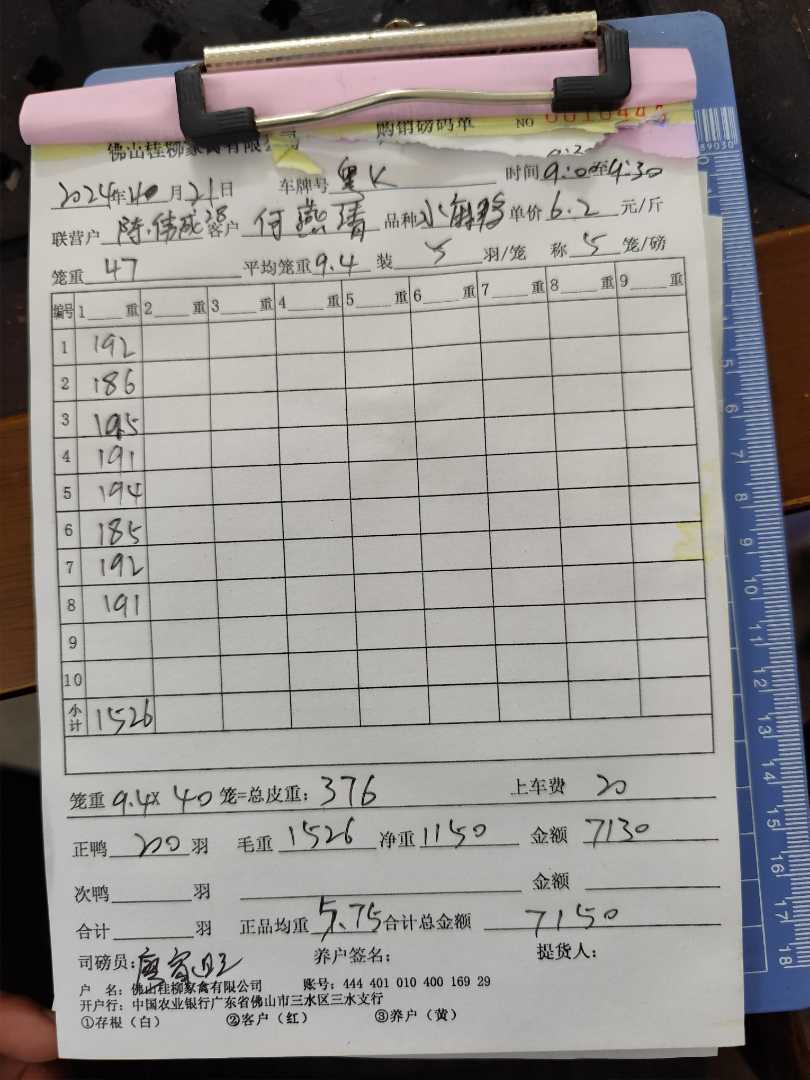 佛山桂柳家禽有限公司 购销磅码单 NO 0010443
2024年10月21日 车牌号 粤K 时间 9:0至9:30
联营户 陈伟成38 客户 何燕清 品种 小麻鸭 单价 6.2 元/斤
笼重 47 平均笼重 9.4 装 5 羽/笼 称 5 笼/磅
编号 1 重 2 重 3 重 4 重 5 重 6 重 7 重 8 重 9 重
1 192
2 186
3 195
4 191
5 194
6 185
7 192
8 191
9
10
小计 1526
笼重 9.4 × 40 笼=总皮重: 376 上车费 20
正鸭 200 羽 毛重 1526 净重 1150 金额 7130
次鸭 羽 金额
合计 羽 正品均重 5.75 合计总金额 7150
司磅员: 养户签名: 提货人:
户 名: 佛山桂柳家禽有限公司 账号: 444 401 010 400 169 29
开户行: 中国农业银行广东省佛山市三水区三水支行
①存根(白) ②客户(红) ③养户(黄)